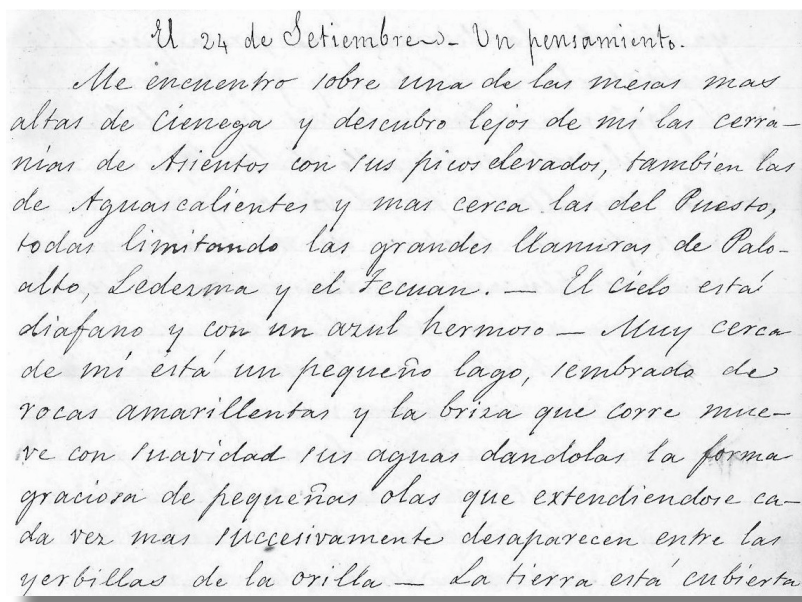 El 24 de Setiembre. - Un pensamiento.
Me encuentro sobre una de las mesas mas
altas de Cienega y descubro lejos de mí las cerra-
nías de Asientos con sus picos elevados, tambien las
de Aguascalientes y mas cerca las del Puesto,
todas limitando las grandes llanuras de Palo-
alto, Ledezma y el Tecuan. — El cielo está
diafano y con un azul hermoso — Muy cerca
de mí está un pequeño lago, sembrado de
rocas amarillentas y la briza que corre mue-
ve con suavidad sus aguas dandolas la forma
graciosa de pequeñas olas que extendiendose ca-
da vez mas successivamente desaparecen entre las
yerbillas de la orilla — La tierra está cubierta